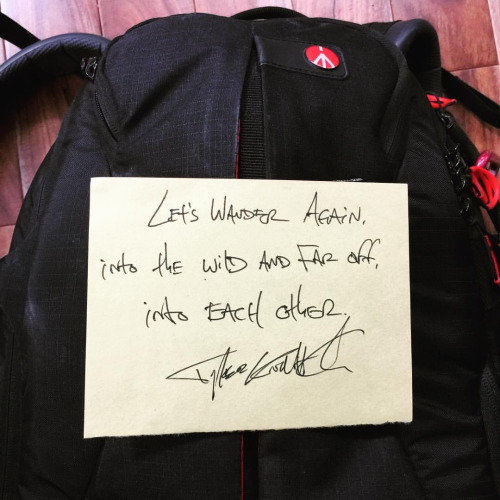 Let's Wander Again.
into the wild and far off.
into each other.
Tyler Knott